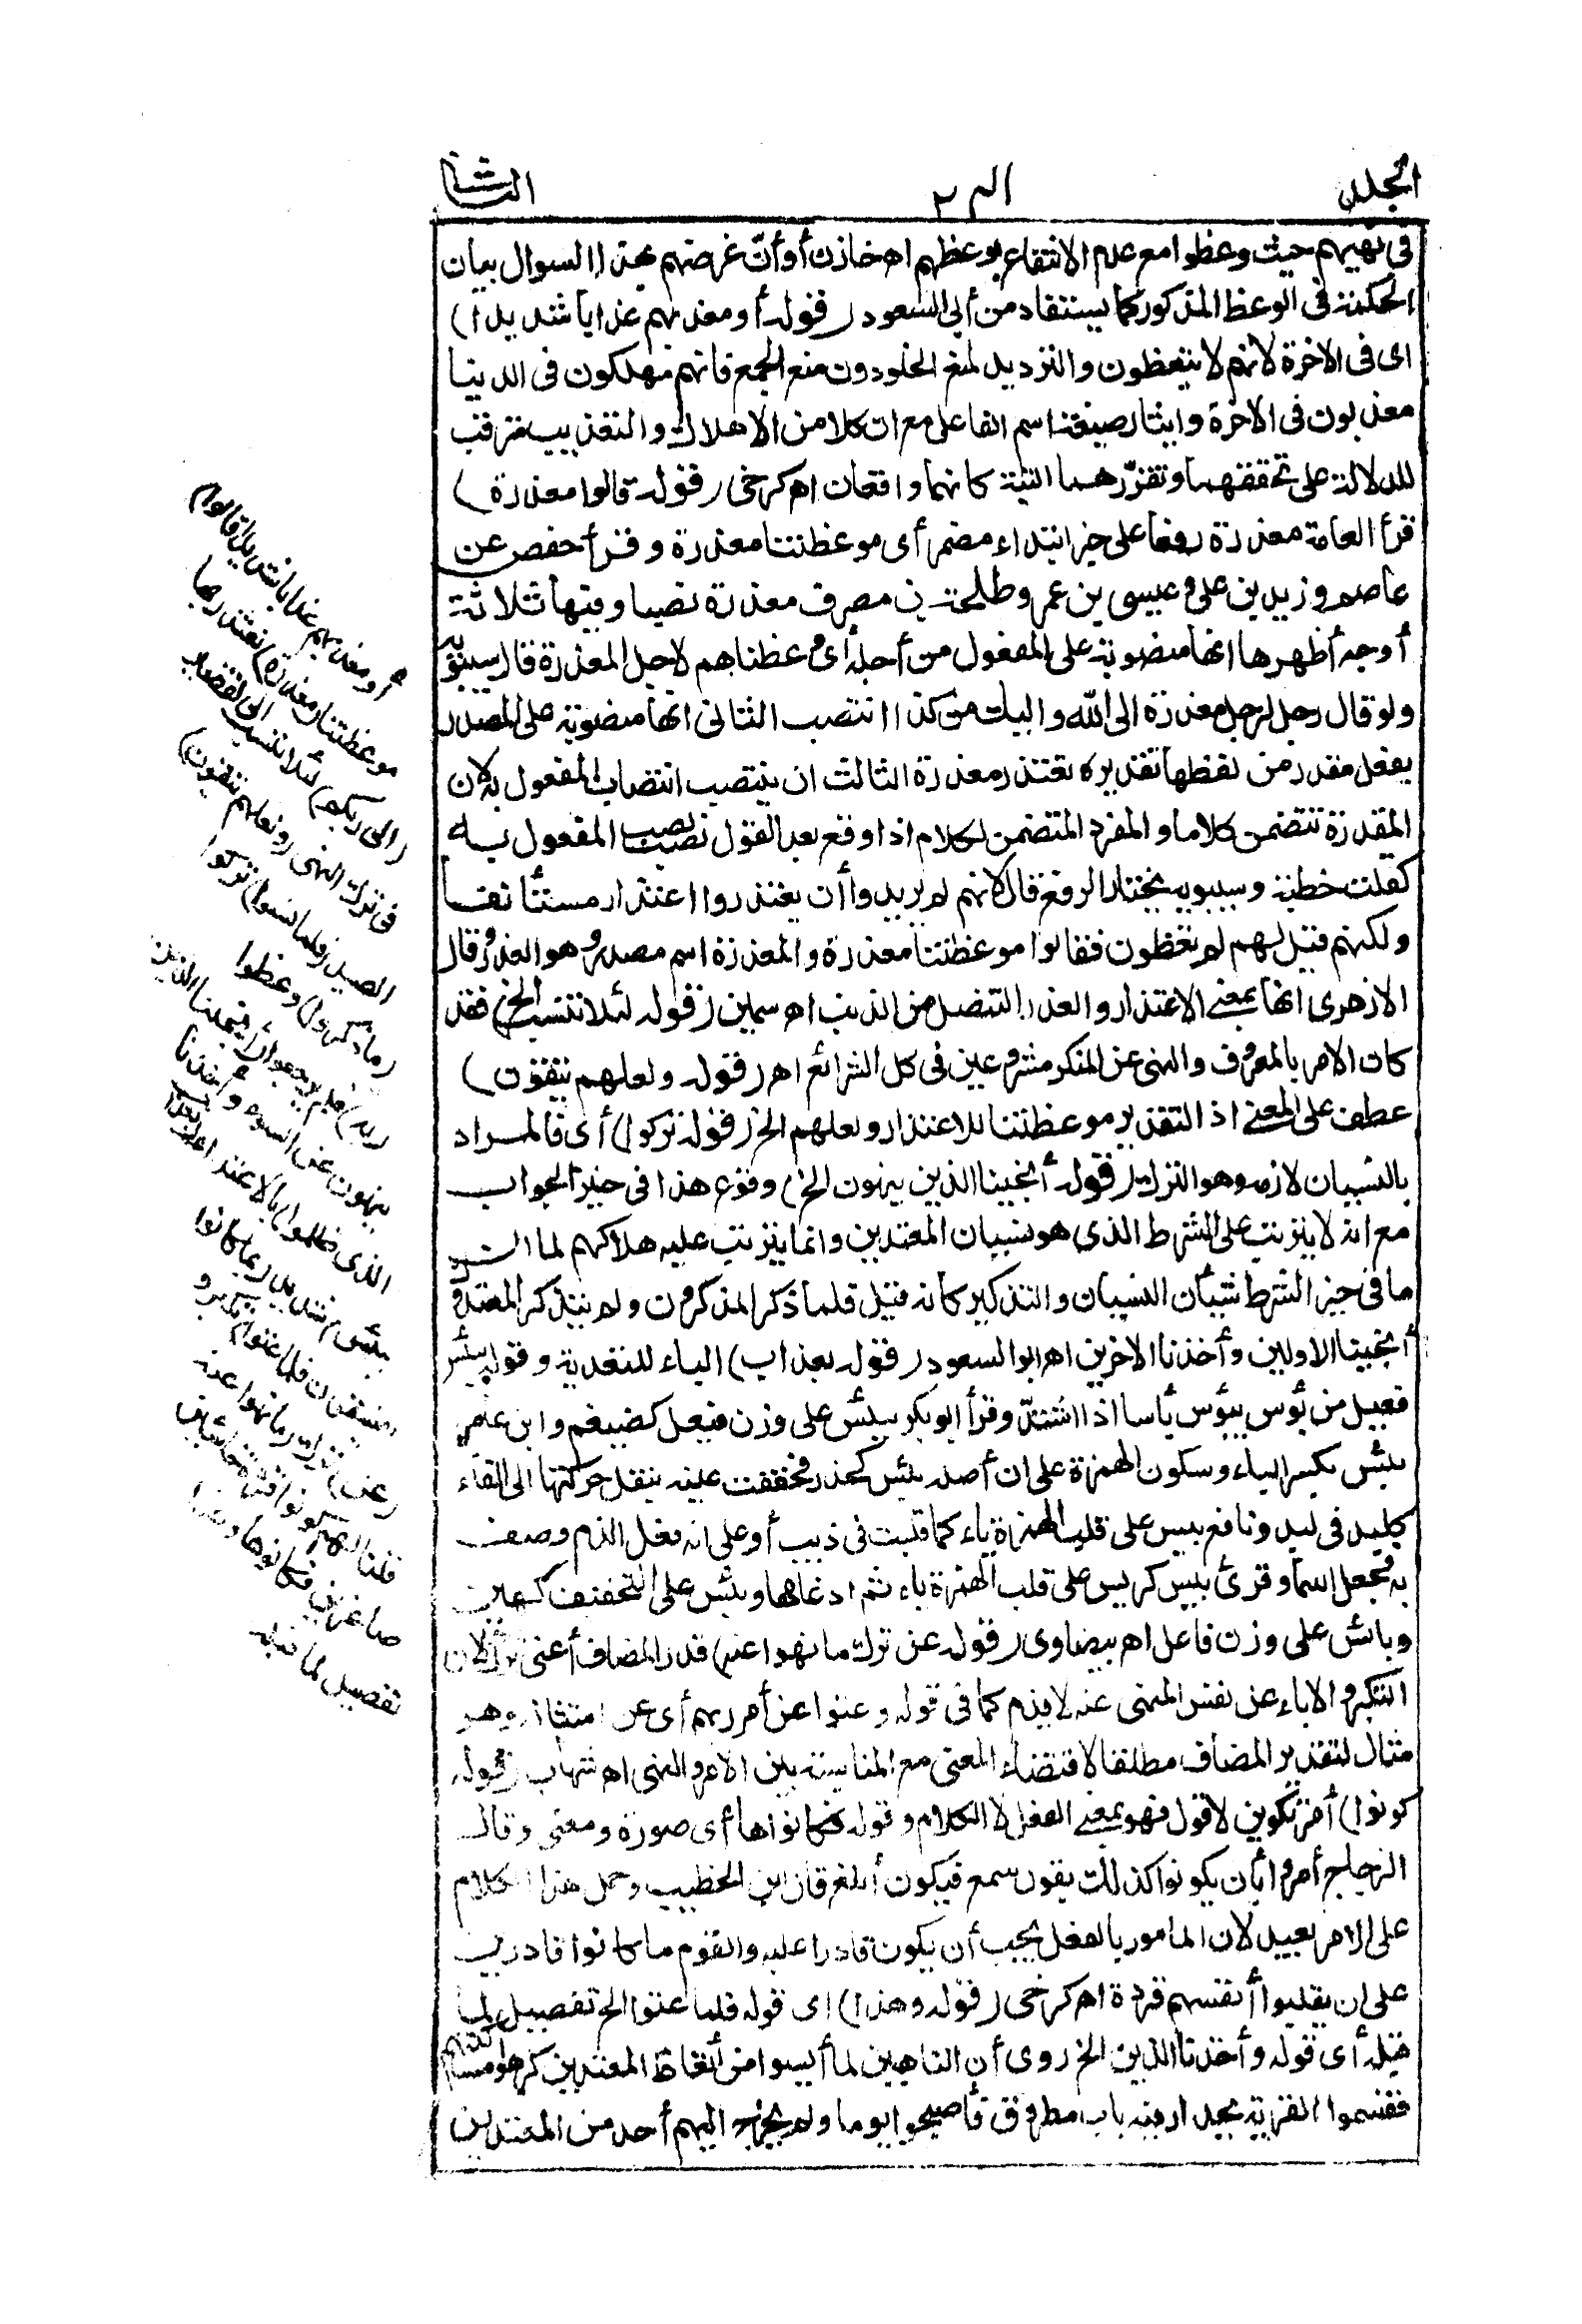 المجلد
الثانى
فى نهيهم حيث وعظوا مع علم الانتفاع بوعظهم اهـ خازن أو أنّ غرضهم بهذا السوال بيان
الحكمة فى الوعظ المذكور كما يستفاد من أبى السعود (قوله أو معذبهم عذابا شديدا)
اى فى الاخرة لانهم لا يتعظون والترديد لمنع الخلو دون منع الجمع فانهم مهلكون فى الدنيا
معذبون فى الاخرة وايثار صيغة اسم الفاعل مع ان كلا من الاهلاك والتعذيب مترقب
للدلالة على تحققهما وتقرّرهما البتة كانهما واقعان اهـ كرخى (قوله قالوا معذرة)
قرأ العامة معذرة رفعا على خبر ابتداء مضمر أى موعظتنا معذرة وقرأ حفص عن
عاصم وزيد بن على وعيسى بن عمر وطلحة بن مصرف معذرة نصبا وفيها ثلاثة
أوجه أظهرها انها منصوبة على المفعول من أجله أى وعظناهم لاجل المعذرة قال سيبويه
ولو قال رجل لرجل معذرة الى الله واليك من كذا انتصب الثانى انها منصوبة على المصدر
بفعل مقدر من لفظها تقديره نعتذر معذرة الثالث ان ينتصب انتصاب المفعول به لان
المعذرة تتضمن كلاما والمفرد المتضمن لكلام اذا وقع بعد القول نصب نصب المفعول به
كقلت خطبة وسيبويه يختار الرفع قال لانهم لم يريدوا أن يعتذروا اعتذارا مستأنفا
ولكنهم قيل لهم لم تعظون فقالوا موعظتنا معذرة والمعذرة اسم مصدر وهو العذر وقال
الازهرى انها بمعنى الاعتذار والعذر التنصل من الذنب اهـ سمين (قوله لئلا ننسب الخ) فقد
كان الامر بالمعروف والنهى عن المنكر مشروعين فى كل الشرائع اهـ (قوله ولعلهم يتقون)
عطف على المعنى اذ التقدير موعظتنا للاعتذار ولعلهم الخ (قوله تركوا) أى فالمراد
بالنسيان لازمه وهو الترك (قوله أنجينا الذين ينهون الخ) وقوع هذا فى حيز الجواب
مع انه لا يترتب على الشرط الذى هو نسيان المعتدين وانما يترتب عليه هلاكهم لما ان
ما فى حيز الشرط شيئان النسيان والتذكير كانه قيل فلما ذكر المذكرون ولم يتذكر المعتدون
أنجينا الاولين وأخذنا الاخرين اهـ ابو السعود (قوله بعذاب) الباء للتعدية وقوله بئيس
فعيل من بؤس يبؤس بأسا اذا اشتدّ وقرأ ابو بكر بيئس على وزن فيعل كضيغم وابن عامر
بئس بكسر الباء وسكون الهمزة على ان أصله بئس كحذر فخففت عينه بنقل حركتها الى الفاء
ككبد فى كبد ونافع بيس على قلب الهمزة ياء كما قلبت فى ذيب أو على انه فعل الذم وصف
به فجعل اسما وقرئ بيس كريس على قلب الهمزة ياء ثم ادغامها وبئس على التخفيف كهين
وبائس على وزن فاعل اهـ بيضاوى (قوله عن ترك ما نهوا عنه) قدر المضاف أعنى ترك لان
التكبر والاباء عن نفس المنهى عنه لا يذم كما فى قوله وعتوا عن أمر ربهم أى عن امتثاله وهو
مثال لتقدير المضاف مطلقا لاقتضاء المعنى مع المناسبة بين الامر والنهى اهـ شهاب (قوله
كونوا) أمر تكوين لا قول فهو بمعنى الفعل لا الكلام وقوله فكانوها أى صورة ومعنى وقال
الزجاج أمروا بأن يكونوا كذلك بقول سمع فيكون أبلغ قال ابن الخطيب وحمل هذا الكلام
على الامر بعيد لان المأمور بالفعل يجب أن يكون قادرا عليه والقوم ما كانوا قادرين
على ان يقلبوا أنفسهم قردة اهـ كرخى (قوله وهذا) اى قوله فلما عتوا الخ تفصيل لما
قبله أى قوله وأخذنا الذين الخ روى أن الناهين لما أيسوا من أتعاظ المعتدين كرهوا مساكنتهم
فقسموا القرية بجدار فيه باب مطروق فأصبحوا يوما ولم يخرج اليهم أحد من المعتدين
أو معذبهم عذابا شديدا قالوا)
موعظتنا (معذرة) نعتذر بها
(الى ربكم) لئلا ننسب الى تقصير
فى ترك النهى (ولعلهم يتقون)
الصيد (فلما نسوا) تركوا
(ما ذكروا) وعظوا
(به) فلم يرجعوا (أنجينا الذين
ينهون عن السوء وأخذنا
الذين ظلموا) بالاعتداء (بعذاب
بئيس) شديد (بما كانوا
يفسقون فلما عتوا) تكبروا
(عن) ترك (ما نهوا عنه
قلنا لهم كونوا قردة خاسئين)
صاغرين فكانوها وهذا
تفصيل لما قبله